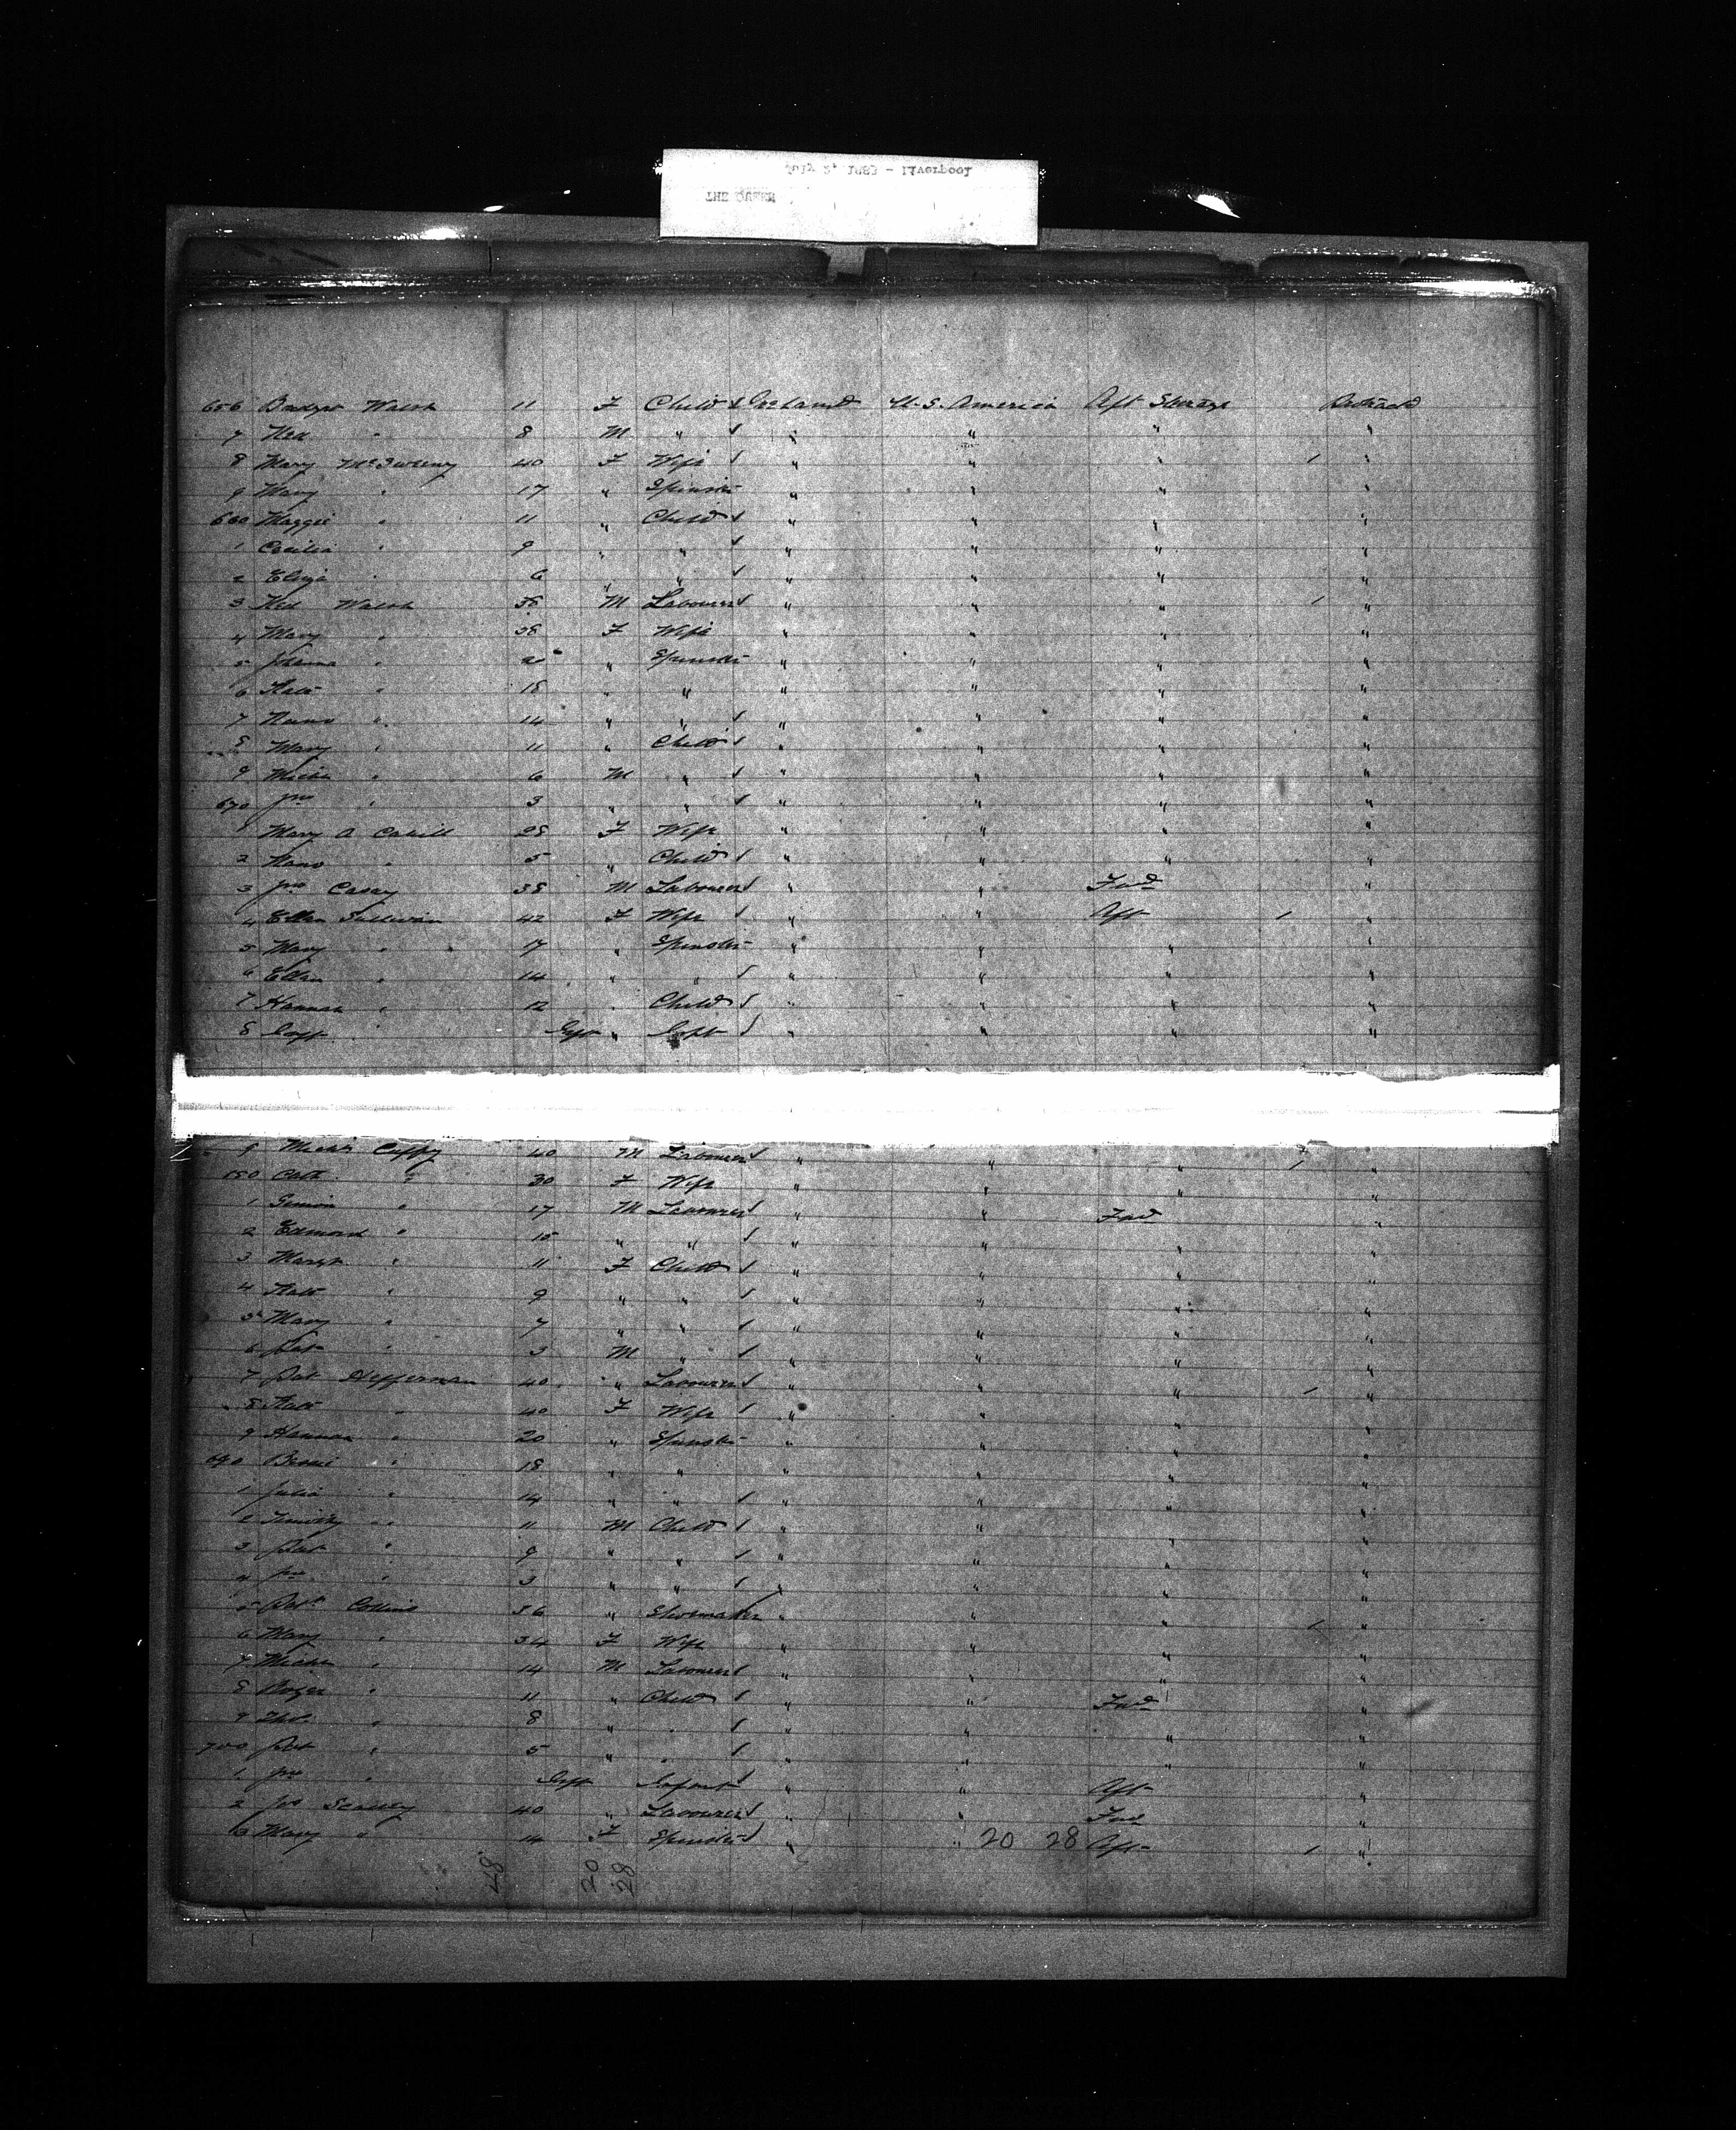 July 2, 1883 - Liverpool
THE QUEEN
656 Bridget Walsh 11 F Child Ireland U.S. America Aft Steerage Protracted
7 Ned " 8 M " " " " "
8 Mary McSweeny 40 F Wife " " " 1 "
9 Mary " 17 " Spinster " " " "
660 Maggie " 11 " Child " " " "
1 Cecilia " 9 " " " " " "
2 Eliza " 6 " " " " " "
3 Ned Walsh 38 M Labourer " " " 1 "
4 Mary " 38 F Wife " " " "
5 Johanna " 20 " Spinster " " " "
6 Kate " 18 " " " " " "
7 Nano " 14 " " " " " "
8 Mary " 11 " Child " " " "
9 Michl " 6 M " " " " "
670 Jno " 3 " " " " " "
1 Mary A Cahill 28 F Wife " " " "
2 Nano " 5 " Child " " " "
3 Jno Casey 38 M Labourer " " Fwd "
4 Ellen Sullivan 42 F Wife " " Aft 1 "
5 Mary " 17 " Spinster " " " "
6 Ellen " 14 " " " " " "
7 Hannah " 12 " Child " " " "
8 Inft " Inft " Inft " " " "
9 Michl Cuffy 40 M Labourer " " " 1 "
680 Cath " 30 F Wife " " " "
1 Simon " 17 M Labourer " " Fwd "
2 Edmond " 15 " " " " " "
3 Margt " 11 F Child " " " "
4 Kate " 9 " " " " " "
5 Mary " 7 " " " " " "
6 Pat " 3 M " " " " "
7 Pat Heffernan 40 " Labourer " " " 1 "
8 Kate " 40 F Wife " " " "
9 Hannah " 20 " Spinster " " " "
690 Bessie " 18 " " " " " "
1 Julia " 14 " " " " " "
2 Timothy " 11 M Child " " " "
3 Pat " 9 " " " " " "
4 Jno " 3 " " " " " "
5 Patk Collins 36 " Shoemaker " " " 1 "
6 Mary " 34 F Wife " " " "
7 Michl " 14 M Labourer " " " "
8 Roger " 11 " Child " " Fwd "
9 Thos " 8 " " " " " "
700 Pat " 5 " " " " " "
1 Jno " Inft Infant " " Aft "
2 Jno Scully 40 " Labourer " " Fwd "
3 Mary " 14 F Spinster " " 20 28 Aft 1 "
48 20 28